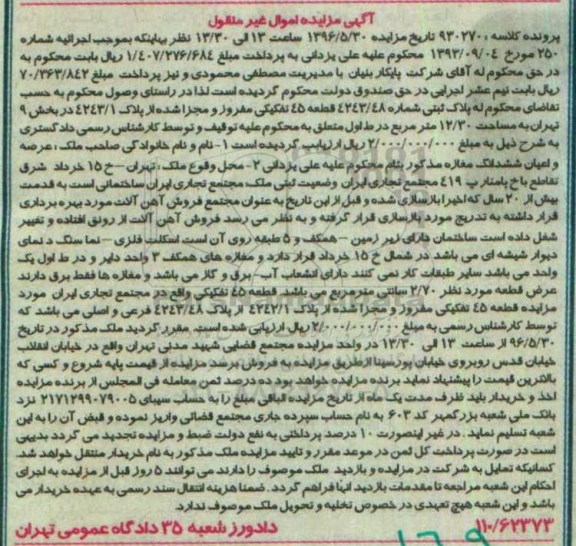 آگهی مزایده اموال غیر منقول
پرونده کلاسه : ۹۳۰۲۷۰ تاریخ مزایده ۱۳۹۶/۵/۳۰ ساعت ۱۳ الی ۱۳/۳۰ نظر بهاینکه بموجب اجرائیه شماره
۲۵۰ مورخ ۱۳۹۳/۰۹/۰۴ محکوم علیه علی یزدانی به پرداخت مبلغ ۱/۴۰۷/۲۷۶/۶۸۴ ریال بابت محکوم به
در حق محکوم له آقای شرکت پایکار بنیان با مدیریت مصطفی محمودی و نیز پرداخت مبلغ ۷۰/۳۶۳/۸۴۲
ریال بابت نیم عشر اجرایی در حق صندوق دولت محکوم گردیده است لذا در راستای وصول محکوم به حسب
تقاضای محکوم له پلاک ثبتی شماره ۴۲۴۳/۴۸ قطعه ۴۵ تفکیکی مفروز و مجزا شده از پلاک ۴۲۴۳/۱ در بخش ۹
تهران به مساحت ۱۲/۳۰ متر مربع در ط اول متعلق به محکوم علیه توقیف و توسط کارشناس رسمی دادگستری
به شرح ذیل به مبلغ ۲/۰۰۰/۰۰۰/۰۰۰ ریال ارزیابی گردیده است ۱- نام و نام خانوادگی صاحب ملک : عرصه
و اعیان ششدانگ مغازه مذکور بنام محکوم علیه علی یزدانی ۲- محل وقوع ملک : تهران – خ ۱۵ خرداد شرق
تقاطع با خ پامنار پ ۴۱۹ مجتمع تجاری ایران وضعیت ثبتی ملک: مجتمع تجاری ایران ساختمانی است به قدمت
بیش از ۲۰ سال که اخیرا بازسازی شده و قبل از این تاریخ به عنوان مجتمع فروش آهن آلات مورد بهره برداری
قرار داشته به تدریج مورد بازسازی قرار گرفته و به نظر می رسد فروش آهن آلات از رونق افتاده و تغییر
شغل داده است ساختمان دارای زیر زمین – همکف و ۵ طبقه روی آن است اسکلت فلزی – نما سنگ د نمای
دیوار شیشه ای می باشد در شمال خ ۱۵ خرداد قرار دارد و مغازه های همکف ۳ واحد دایر و در ط اول یک
واحد می باشد سایر طبقات کار نمی کنند دارای انشعاب آب – برق و گاز می باشد و مغازه ها فقط برق دارند
عرض قطعه مورد نظر ۲/۷۰ سانتی متر مربع می باشد. قطعه ۴۵ تفکیکی واقع در مجتمع تجاری ایران مورد
مزایده قطعه ۴۵ تفکیکی مفروز و مجزا شده از پلاک ۴۲۴۲/۱ از پلاک ۴۲۴۳/۴۸ فرعی و اصلی می باشد که
توسط کارشناس رسمی به مبلغ ۲/۰۰۰/۰۰۰/۰۰۰ ریال ارزیابی شده است. مقرر گردید ملک مذکور در تاریخ
۹۶/۵/۳۰ از ساعت ۱۳ الی ۱۳/۳۰ در واحد مزایده مجتمع قضایی شهید مدنی تهران واقع در خیابان انقلاب
خیابان قدس روبروی خیابان پورسینا از طریق مزایده به فروش برسد مزایده از قیمت پایه شروع و کسی که
بالاترین قیمت را پیشنهاد نماید برنده مزایده خواهد بود ده درصد ثمن معامله فی المجلس از برنده مزایده
اخذ و خریدار باید ظرف مدت یک ماه از تاریخ مزایده الباقی مبلغ را به حساب سیبای ۲۱۷۱۲۹۹۰۷۹۰۰۵ نزد
بانک ملی شعبه بزرگمهر کد ۶۰۳ به نام حساب سپرده جاری مجتمع قضائی واریز نموده و قبض آن را به این
شعبه تسلیم نماید . در غیر اینصورت ۱۰ درصد پرداختی به نفع دولت ضبط و مزایده تجدید می گردد بدیهی
است در صورت پرداخت کل ثمن در موعد مقرر و تایید مزایده ملک مذکور به نام خریدار منتقل خواهد شد.
کسانیکه تمایل به شرکت در مزایده و بازدید ملک موصوف را دارند می توانند ۵ روز قبل از مزایده به اجرای
احکام این شعبه مراجعه تا مقدمات بازدید آنها فراهم گردد . ضمنا هزینه انتقال سند رسمی به عهده خریدار می
باشد و این شعبه هیچ تعهدی در خصوص تخلیه و تحویل ملک موصوف ندارد.
۱۱۰/۶۲۳۷۳ دادورز شعبه ۳۵ دادگاه عمومی تهران